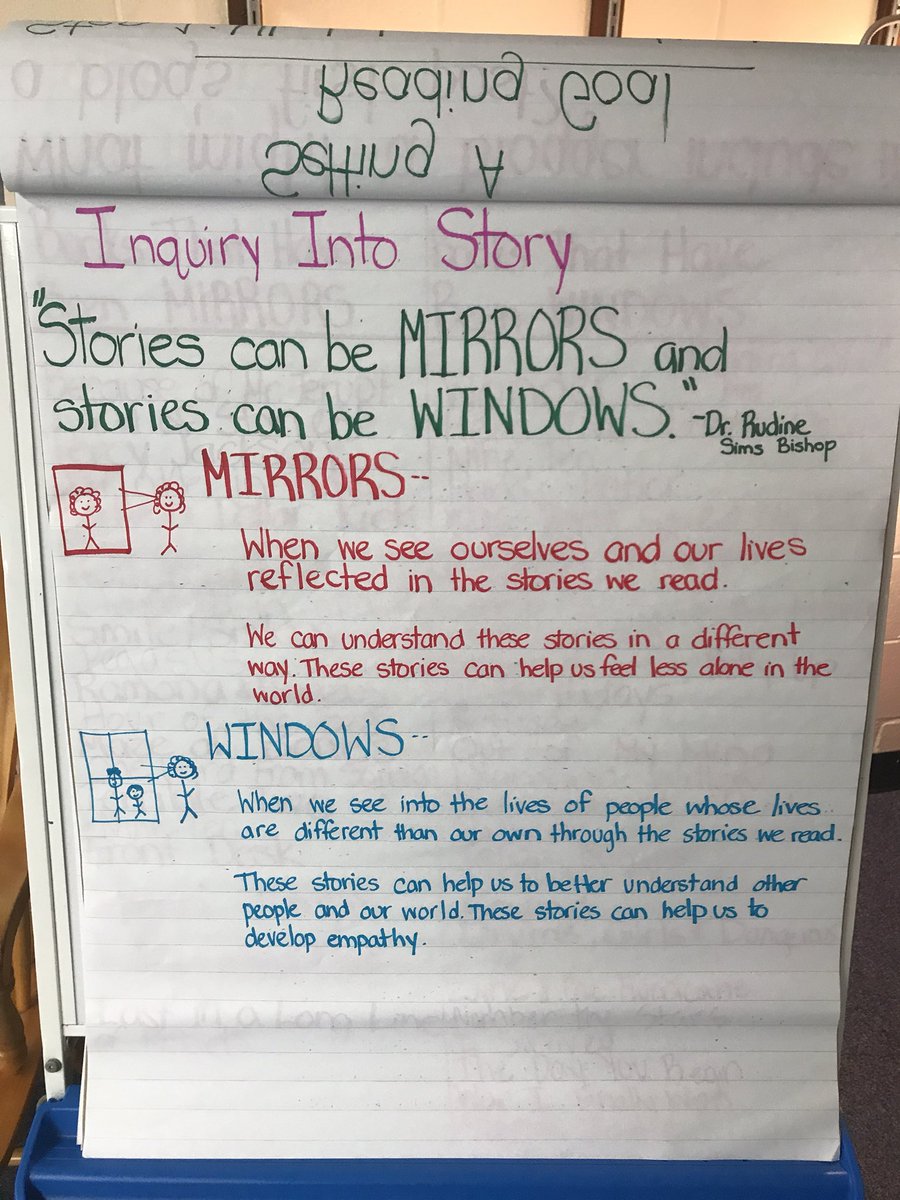 Setting A
Reading Goal
Inquiry Into Story
"Stories can be MIRRORS and
stories can be WINDOWS." -Dr. Rudine
Sims Bishop
MIRRORS--
When we see ourselves and our lives
reflected in the stories we read.
We can understand these stories in a different
way. These stories can help us feel less alone in the
world.
WINDOWS--
When we see into the lives of people whose lives
are different than our own through the stories we read.
These stories can help us to better understand other
people and our world. These stories can help us to
develop empathy.